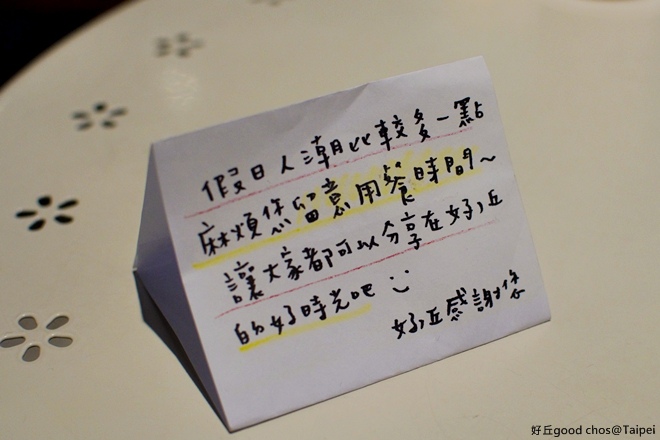 假日人潮比較多一點
麻煩您留意用餐時間~
讓大家都可以分享在好丘
的好時光吧 :)
好丘感謝您
好丘good chos@Taipei